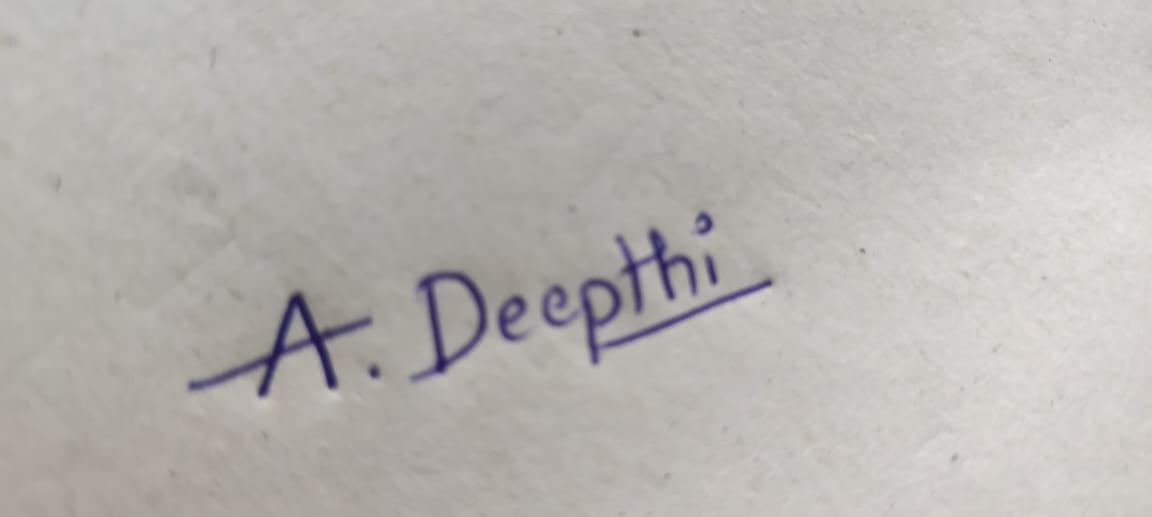 A. Deepthi